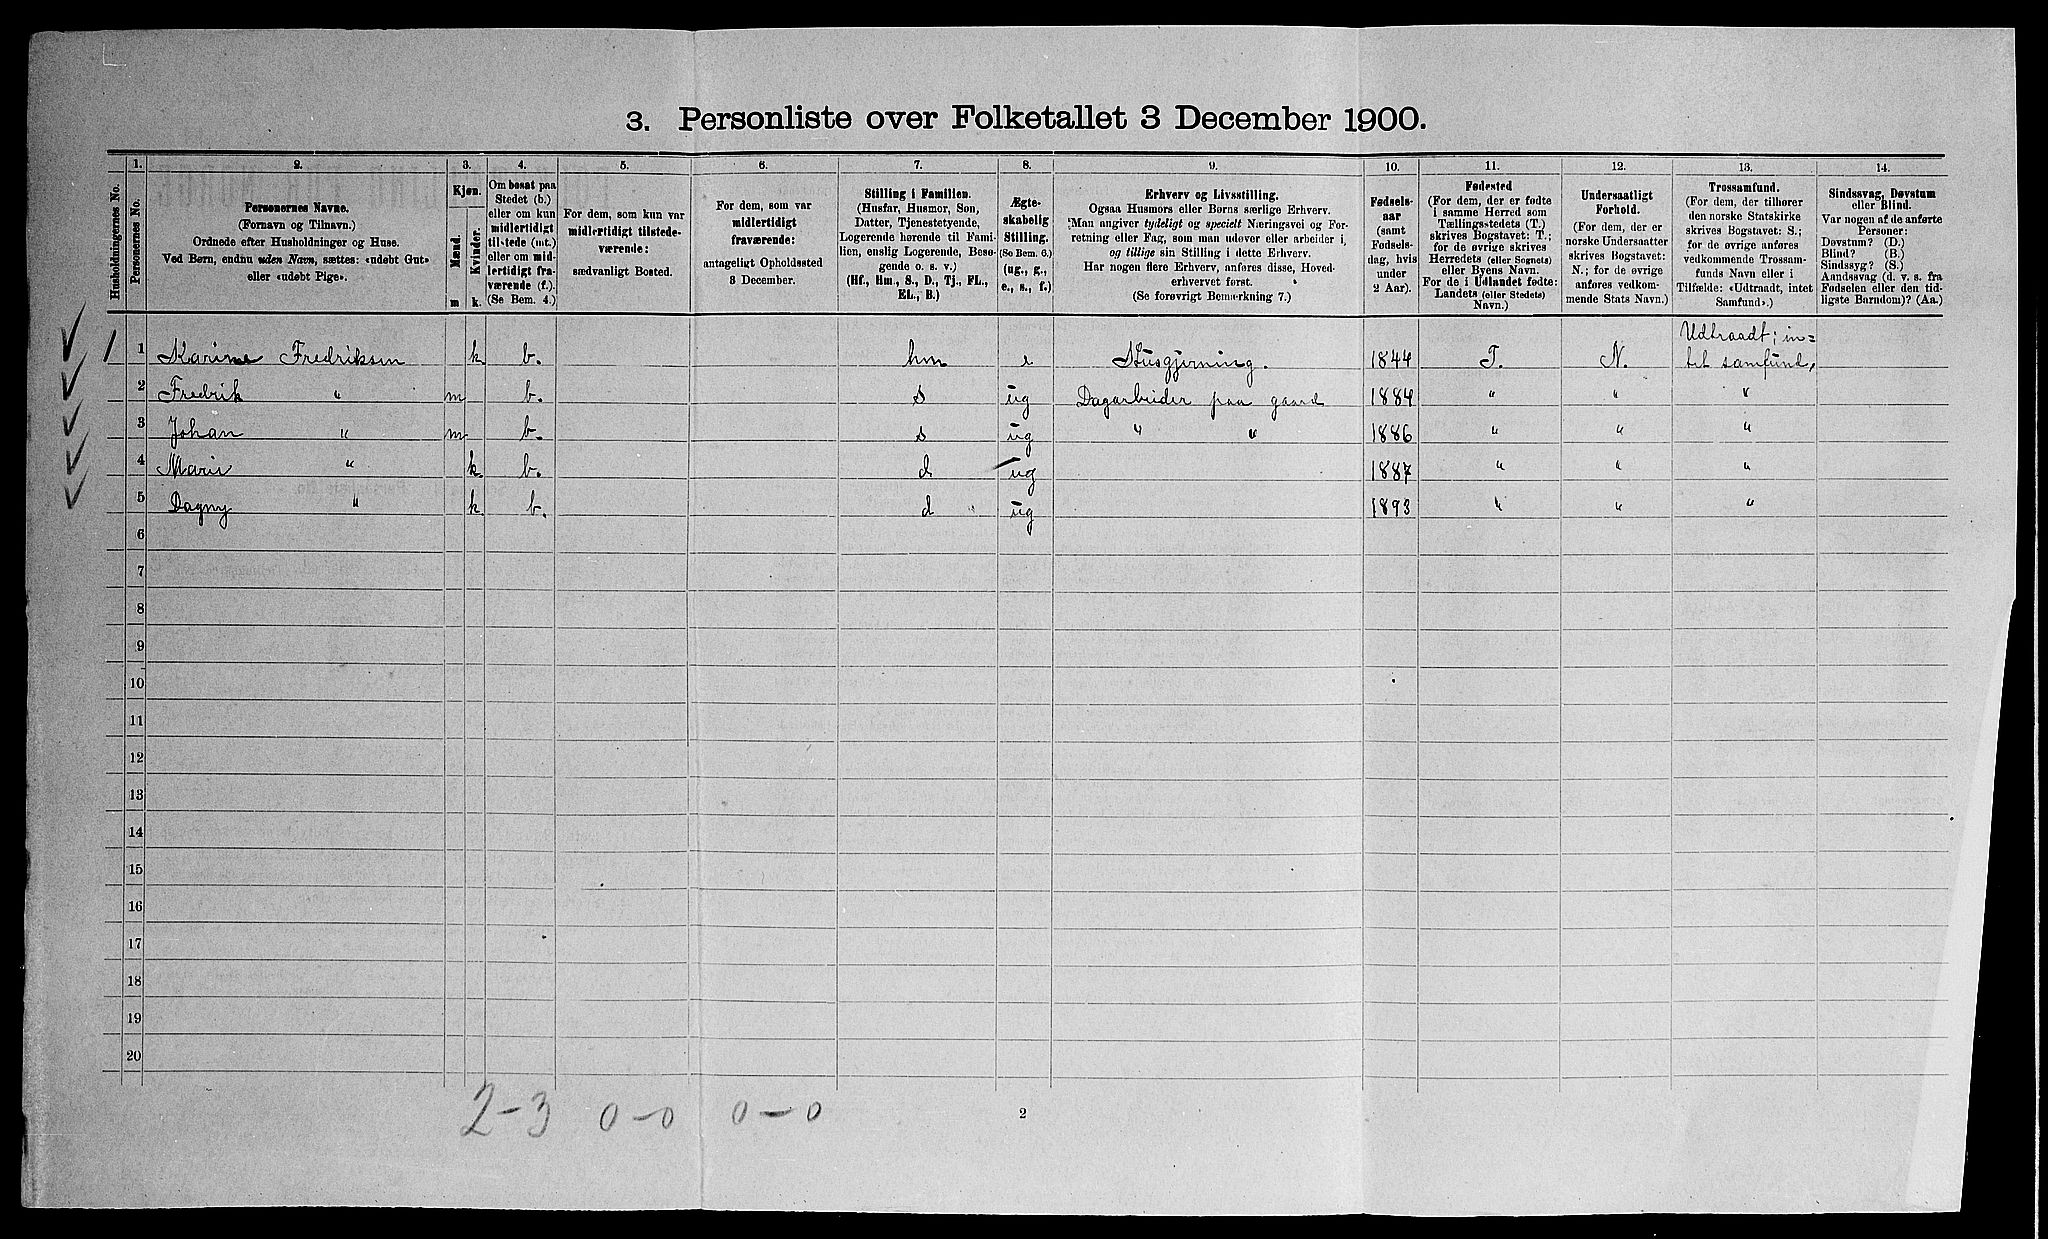 3. Personliste over Folketallet 3 December 1900.
1. 2. 3. 4. 5. 6. 7. 8. 9. 10. 11. 12. 13. 14.
Husholdningernes No.
Personernes No.
Personernes Navne.
(Fornavn og Tilnavn.)
Ordnede efter Husholdninger og Huse.
Ved Børn, endnu uden Navn, sættes: «udøbt Gut»
eller «udøbt Pige».
Kjøn.
Mænd.
Kvinder.
m k.
Om bosat paa
Stedet (b.)
eller om kun
midlertidigt
tilstede (mt.)
eller om mid-
lertidigt fra-
værende (f.).
(Se Bem. 4.)
For dem, som kun var
midlertidigt tilstede-
værende:
sædvanligt Bosted.
For dem, som var
midlertidigt
fraværende:
antageligt Opholdssted
3 December.
Stilling i Familien.
(Husfar, Husmor, Søn,
Datter, Tjenestetyende,
Logerende hørende til Fami-
lien, enslig Logerende, Besø-
gende o. s. v.)
(Hf., Hm., S., D., Tj., FL.,
EL., B.)
Ægte-
skabelig
Stilling.
(Se Bem. 6.)
(ug., g.,
e., s., f.)
Erhverv og Livsstilling.
Ogsaa Husmors eller Børns særlige Erhverv.
Man angiver tydeligt og specielt Næringsvei og For-
retning eller Fag, som man udøver eller arbeider i,
og tillige sin Stilling i dette Erhverv.
Har nogen flere Erhverv, anføres disse, Hoved-
erhvervet først.
(Se forøvrigt Bemærkning 7.)
Fødsels-
aar
(samt
Fødsels-
dag, hvis
under
2 Aar).
Fødested
(For dem, der er fødte
i samme Herred som
Tællingsstedets (T.)
skrives Bogstavet: T.;
for de øvrige skrives
Herredets (eller Sognets)
eller Byens Navn.
For de i Udlandet fødte:
Landets (eller Stedets)
Navn.)
Undersaatligt
Forhold.
(For dem, der er
norske Undersaatter
skrives Bogstavet:
N.; for de øvrige
anføres vedkom-
mende Stats Navn.)
Trossamfund.
(For dem, der tilhører
den norske Statskirke
skrives Bogstavet: S.;
for de øvrige anføres
vedkommende Trossam-
funds Navn eller i
Tilfælde: «Udtraadt, intet
Samfund».)
Sindssvag, Døvstum
eller Blind.
Var nogen af de anførte
Personer:
Døvstum? (D.)
Blind? (B.)
Sindssyg? (S.)
Aandssvag (d. v. s. fra
Fødselen eller den tid-
ligste Barndom)? (Aa.)
1 1 Karine Fredriksen k b. hm e Husgjerning. 1844 T. N. Udtraadt; in=
tet samfund,
2 Fredrik " m b. s ug Dagarbeider paa gaard 1884 " " "
3 Johan " m b. s ug " " 1886 " " "
4 Marie " k b. d ug 1887 " " "
5 Dagny " k b. d ug 1893 " " "
6
7
8
9
10
11
12
13
14
15
16
17
18
19
20
2-3 0-0 0-0
2